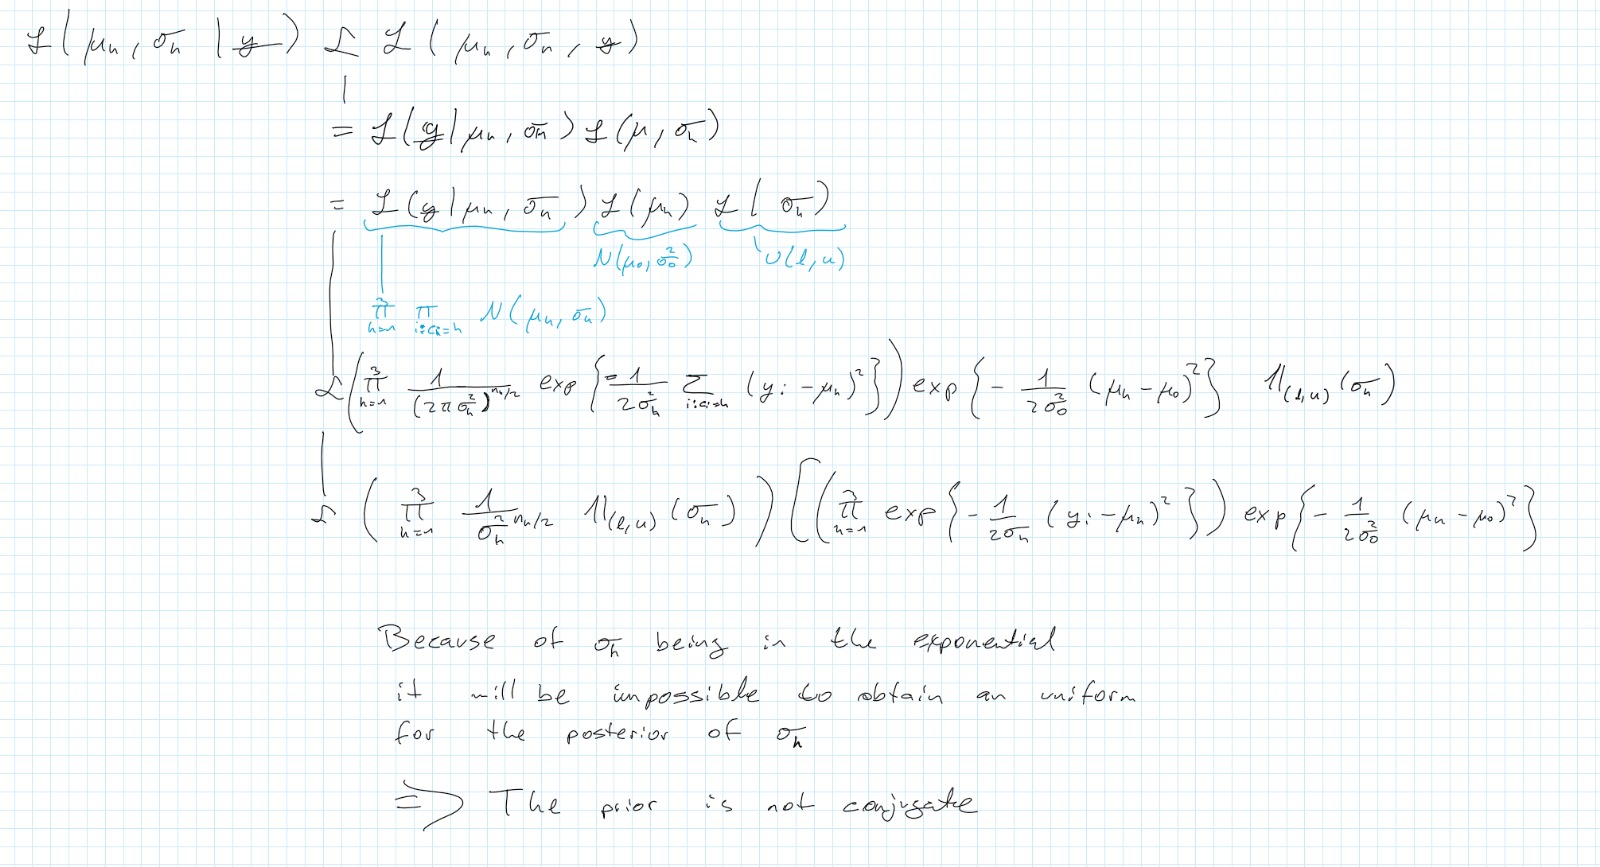 ℒ(μₕ, σₕ | y) ∝ ℒ(μₕ, σₕ, y)
= ℒ(y | μₕ, σₕ) ℒ(μ, σₕ)
= ℒ(y | μₕ, σₕ) ℒ(μₕ) ℒ(σₕ)
N(μ₀, σ₀²) U(l, u)
∏_{h=1}^{3} ∏_{i:cᵢ=h} N(μₕ, σₕ)
∝ (∏_{h=1}^{3} 1/(2πσₕ²)^{nₕ/2} exp{-1/(2σₕ²) ∑_{i:cᵢ=h} (yᵢ - μₕ)²}) exp{-1/(2σ₀²) (μₕ - μ₀)²} 𝟙_{(l,u)}(σₕ)
∝ (∏_{h=1}^{3} 1/σₕ²^{nₕ/2} 𝟙_{(l,u)}(σₕ)) [(∏_{h=1}^{3} exp{-1/(2σₕ) (yᵢ - μₕ)²}) exp{-1/(2σ₀²) (μₕ - μ₀)²}
Because of σₕ being in the exponential
it will be impossible to obtain an uniform
for the posterior of σₕ
⇒ The prior is not conjugate